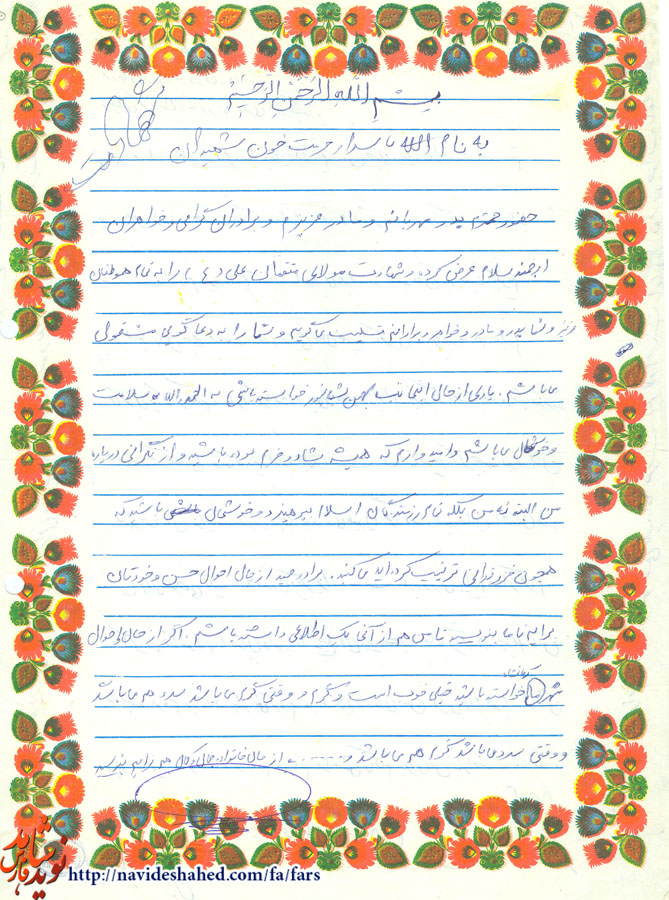 بسم الله الرحمن الرحیم
به نام الله پاسدار حرمت خون شهیدان
حضور محترم پدر مهربانم و مادر عزیزم و برادران گرامی و خواهران
ارجمند سلام عرض کرده و شهادت مولای متقیان علی (ع) را به تمام هموطنان
عزیز و شما پدر و مادر و خواهر و برادرانم تسلیت می گویم و شما را به دعا گویی مشغول
می باشم. باری از حال اینجانب بهمن خواسته باشی به الحمد الله سلامت
و خوشحال می باشم و امیدوارم که همیشه شاد و خرم بوده باشید و از نگرانی درباره
من البته نه من بلکه تمام رزمندگان اسلام بپرهیزد و خوشحال باشید که
همچون فرزندانی تربیت کرده اید می کنید. برادر از حال احوال حسن و خودتان
برایم نامه بنویسید تا من هم از آنجا یک اطلاعی داشته باشم. اگر از حال احوال
کرمانشاه
شهر ما خواسته باشید خیلی خوب است و گرم و وقتی گرم می باشد سرد هم می باشد
و وقتی سرد می باشد گرم هم می باشد و ...... از حال خانواده هم برایم بنویسید
نوید شاهد
فارس
http://navideshahed.com/fa/fars